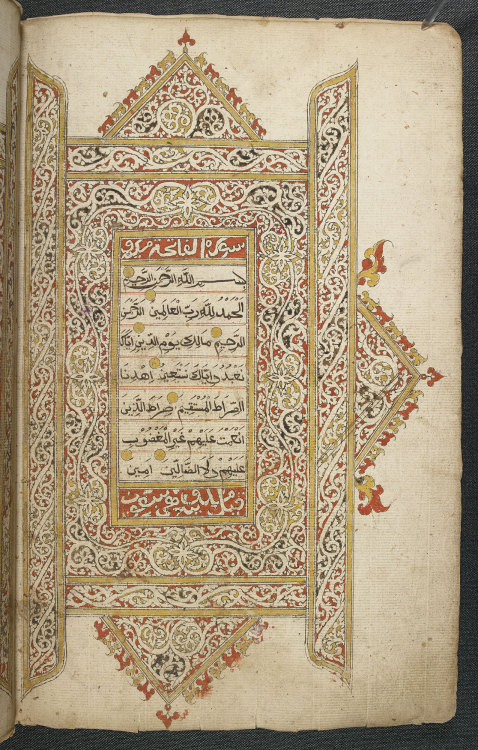 سورة الفاتحة
بِسْمِ اللَّهِ الرَّحْمَنِ الرَّحِيمِ
اَلْحَمْدُ لِلَّهِ رَبِّ الْعَالَمِينَ الرَّحْمَنِ
الرَّحِيمِ مَالِكِ يَوْمِ الدِّينِ اِيَّاكَ
نَعْبُدُ وَاِيَّاكَ نَسْتَعِينُ اِهْدِنَا
الصِّرَاطَ الْمُسْتَقِيمَ صِرَاطَ الَّذِينَ
اَنْعَمْتَ عَلَيْهِمْ غَيْرِ الْمَغْضُوبِ
عَلَيْهِمْ وَلَا الضَّالِّينَ اٰمِينَ